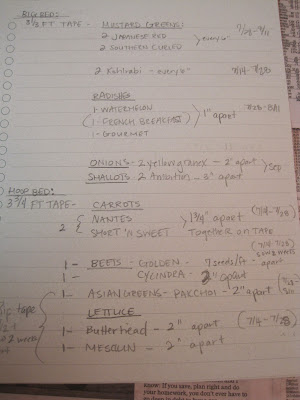 BIG BED:
3 3/4 FT TAPE - MUSTARD GREENS:
2 JAPANESE RED
2 SOUTHERN CURLED
> every 6" 7/28-8/11
2 Kohlrabi - every 6" 7/14-7/28
RADISHES
1-WATERMELON
(1-FRENCH BREAKFAST)
1-GOURMET
> 1" apart 7/28-8/11
ONIONS- 2 yellow granex - 2" apart
SHALLOTS- 2 Ambition - 3" apart
> SEP
HOOP BED:
3 3/4 FT TAPE- CARROTS
2 { NANTES
SHORT 'N SWEET
> 1 3/4" apart (7/14-7/28)
Together on TAPE
1- BEETS- GOLDEN - 7 seeds/ft - apart (7/14-7/28)
1- CYLINDRA - 2" apart
1- ASIAN GREENS- PAKCHOI - 2" apart
LETTUCE
1- Butterhead - 2" apart (7/14-7/28)
1- MESCLUN - 2" apart
tape
weeks
know: If you save, plan right and do
your homework, you don't ever have to